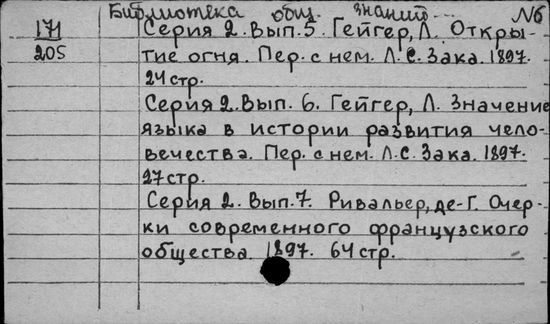 Библиотека общ. знаний... №6
171
205
Серия 2. Вып. 5. Гейгер, Л. Откры-
тие огня. Пер. с нем. Л.С. Зака. 1897.
24 стр.
Серия 2. Вып. 6. Гейгер, Л. Значение
языка в истории развития чело-
вечества. Пер. с нем. Л.С. Зака. 1897.
27 стр.
Серия 2. Вып. 7. Ривальер, де-Г. Очер-
ки современного французского
общества. 1897. 64 стр.